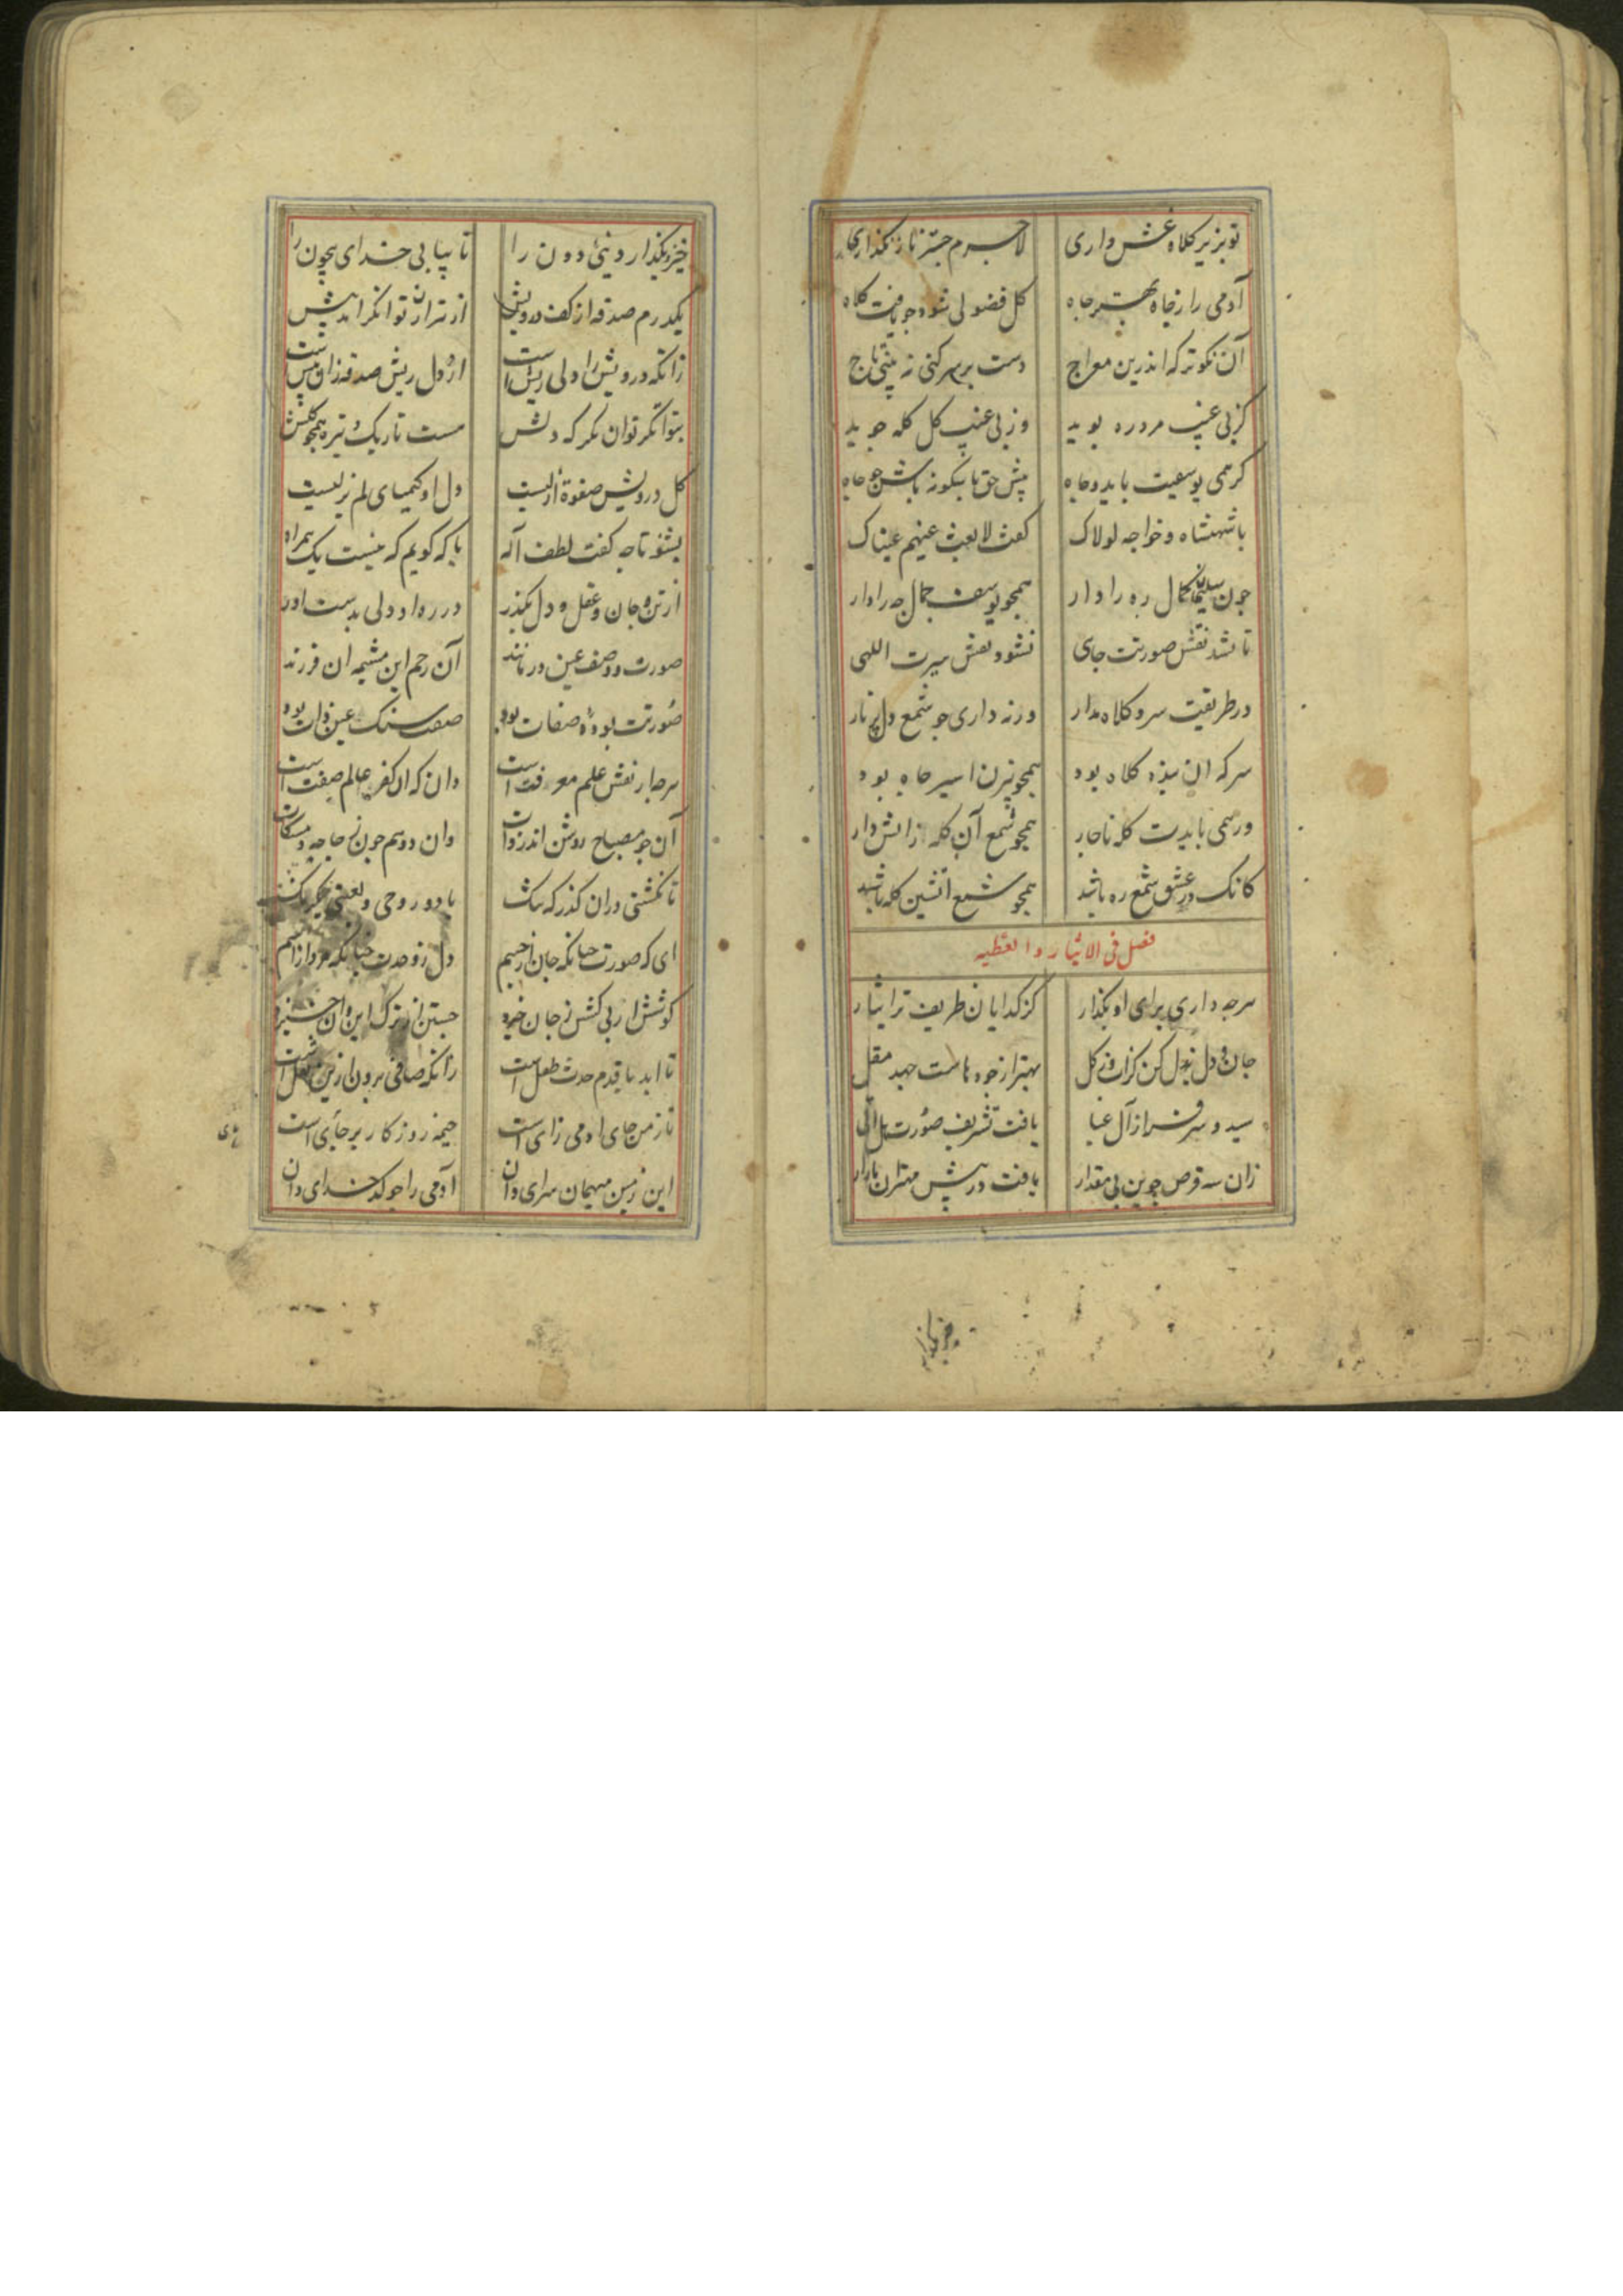 تو بزیر کلاه غش داری لاجرم جز نماز نگذاری
آدمی را ز جاه بهتر چاه کل فضولی شود جو یافت کلاه
آن نکوتر که اندرین معراج دست بر سر کنی نه بینی تاج
کز پی عیب مرد ره بوید وز پی عیب کل کله جوید
کرهمی یوسفیت باید و جاه پیش حق باشکونه باش جو چاه
با شهنشاه و خواجه لولاک کفت لا تعد عینهم عیناک
جون سلیمان کمال ره را دار همجو یوسف جمال جه را دار
تا نشد نقش صورتت جاهی نشود نقش سیرت اللهی
در طریقت سر و کلاه مدار ورنه داری جو شمع دل پر نار
سر که آن بنده کلاه بود همجو بیژن اسیر جاه بود
ور همی بایدت کله ناجار همجو شمع آن کله ز آتش دار
کانک در عشق شمع ره باشد همجو شمع آتشین کله باشد
فصل فی الایثار و العطیه
هرجه داری برای او بگذار کز کدایان ظریف تر ایثار
جان و دل بذل کن کز آب و ز کل بهتر از جود ماست جهد مقل
سید و سرفراز آل عبا یافت تشریف صورت هل اتی
زان سه قرص جوین بی مقدار یافت در پیش مهتران بازار
خیز و بگذار دنیی دون را تا بیابی خدای بیجون را
یکدرم صدقه از کف درویش از هزار توانکر آمد بیش
زانکه درویش را دلی ریش است از دل ریش صدقه زان بیش است
بتوانکر توان نکر که دلش هست تاریک و تیره همجو کلش
کل درویش صفوة ازلیست دل او کیمیای لم یزلیست
بشنو تا جه کفت لطف اله با که کویم که نیست یک همراه
از تن و جان و عقل و دل بگذر در ره او دلی بدست آور
صورت و وصف عین درمانند آن رحم این مشیمه آن فرزند
صورتت برده صفات بود صفت سنک عین ذات بود
هرجه آن نقش علم معرفت است دان که آن کفر عالم صفت است
آن جو مصباح روشن اندر ذات وان دوم جون زجاجه و مشکات
ای که صورت جنانکه جان از جسم دل ز وحدت جنانکه مرد از اسم
کوشش از پی کشش ز جان خیزد جستن از ترک این و آن خیزد
تا ابد با قدم حدث طفل است زانکه صافی برون ازین ثفل است
تا زمین جای آدمی زای است خیمه روزکار برجای است
این زمین میهمان سرای دان آدمی را جو کدخدای دان
خیز و بگذار